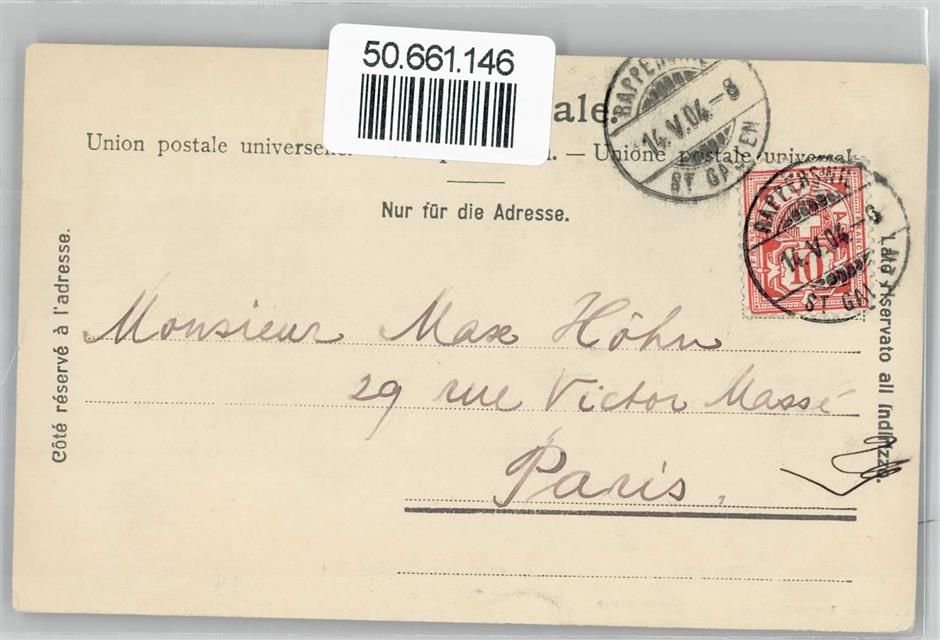 50.661.146
ale.
Union postale universelle. — Unione postale universale
Nur für die Adresse.
Côté réservé à l'adresse.
Lato riservato all'indirizzo.
RAPPERSWIL
14.V.04-8
ST GALLEN
RAPPERSWIL
14.V.04-8
ST GALLEN
FRANCO
10
Monsieur Max Höhn
29 rue Victor Massé
Paris,